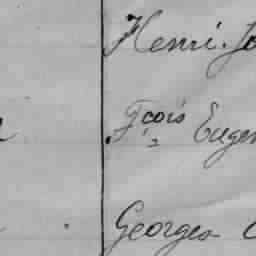 Henri. Jo
Fçois Eugen
Georges